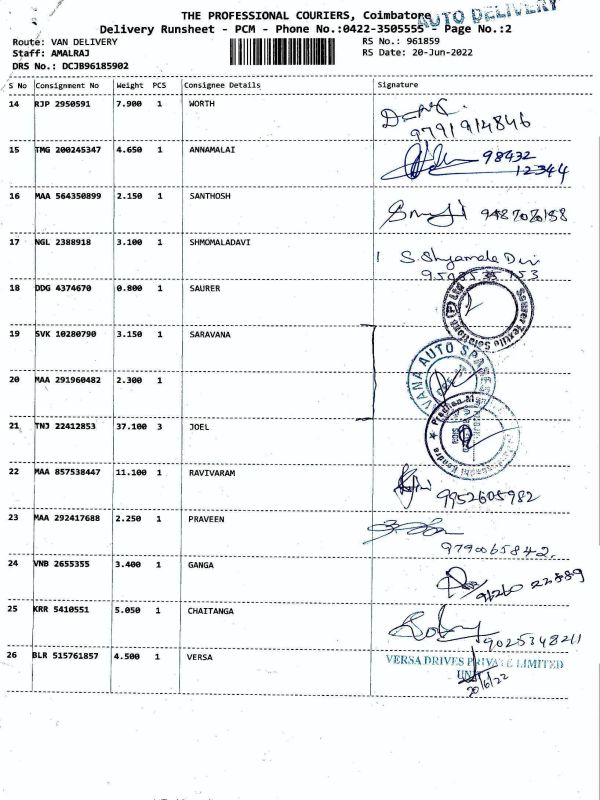 THE PROFESSIONAL COURIERS, Coimbatore
AUTO DELIVERY
Delivery Runsheet - PCM - Phone No.:0422-3505555 - Page No.:2
Route: VAN DELIVERY RS No.: 961859
Staff: AMALRAJ RS Date: 20-Jun-2022
DRS No.: DCJB96185902
S No Consignment No Weight PCS Consignee Details Signature
14 RJP 2950591 7.900 1 WORTH
9791914846
15 TMG 200245347 4.650 1 ANNAMALAI 98432
12344
16 MAA 564350899 2.150 1 SANTHOSH
17 NGL 2388918 3.100 1 SHMOMALADAVI S. Shyamala Devi
18 DDG 4374670 0.800 1 SAURER
Saurer Textile Solutions (P) Ltd
19 SVK 10280790 3.150 1 SARAVANA
VANA AUTO SPARES
20 MAA 291960482 2.300 1
21 TNJ 22412853 37.100 3 JOEL
Kendra
22 MAA 857538447 11.100 1 RAVIVARAM
9952605982
23 MAA 292417688 2.250 1 PRAVEEN
9790065842.
24 VNB 2655355 3.400 1 GANGA
25 KRR 5410551 5.050 1 CHAITANGA
9025348211
26 BLR 515761857 4.500 1 VERSA VERSA DRIVES PRIVATE LIMITED
20/6/22